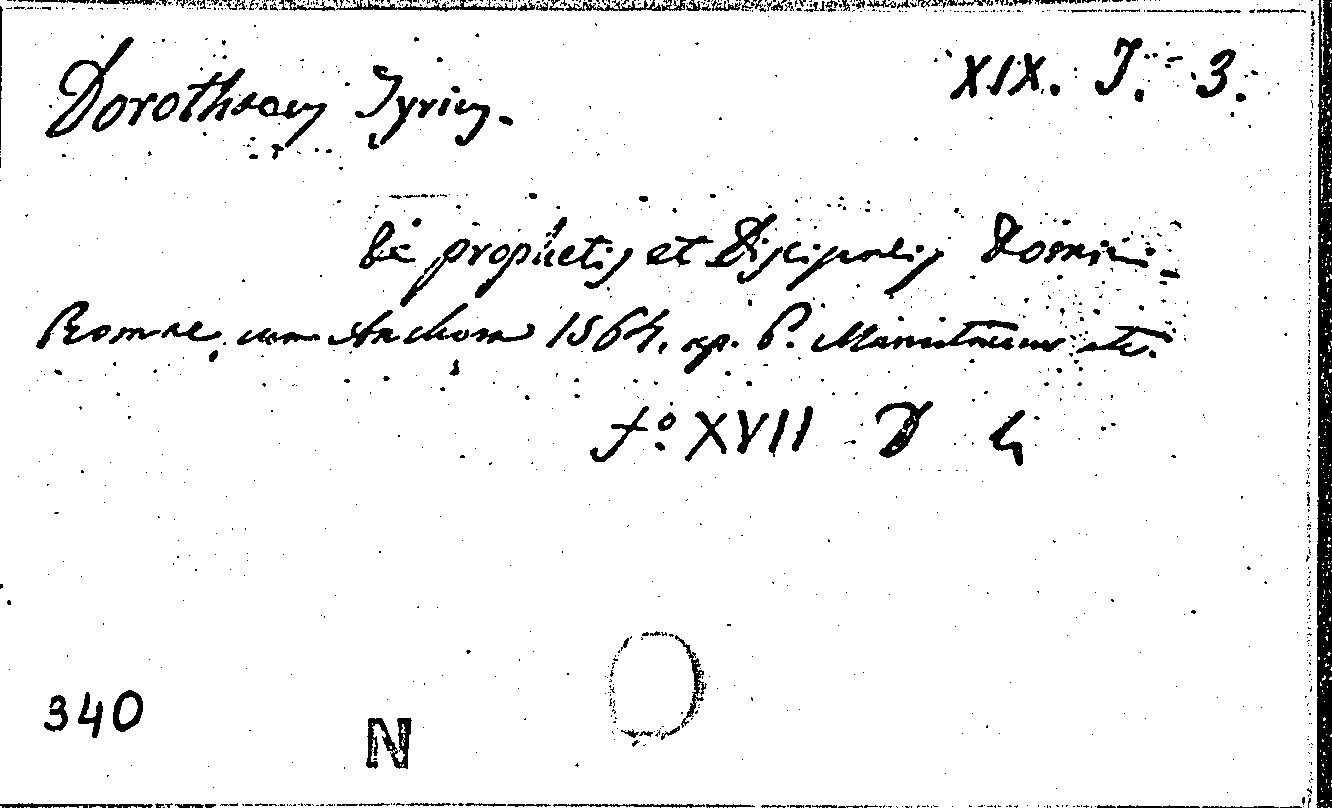 Dorotheus Tyrius. XIX. J. 3.
De prophetis et Discipulis Domini.
Romae, cum Anchora 1564. ap. P. Manutium etc.
fº XVII D
340 N